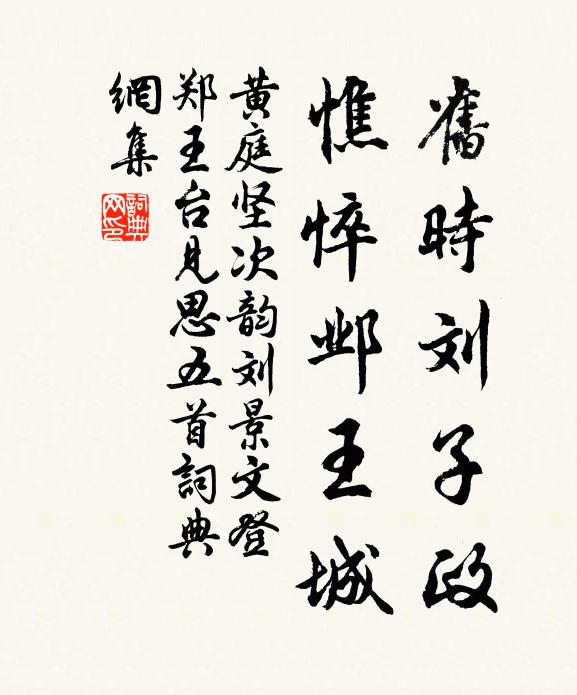 舊時刘子政
憔悴邺王城
黄庭坚次韵刘景文登
郑王台见思五首詞典
網集
詞典
网印